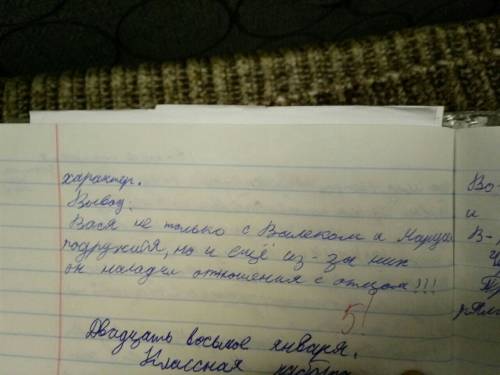 характер.
Вывод.
Вася не только с Валеком и Марусей
подружился, но и ещё из-за них
он наладил отношения с отцом!!!
5/
Двадцать восьмое января.
Классная работа
Во-
и
В-